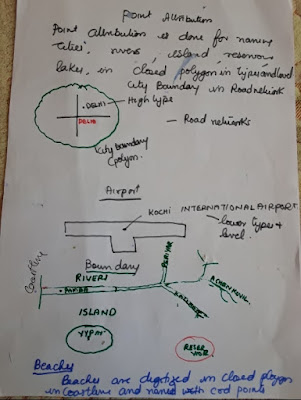 Point Attribution
Point Attribution is done for naming
Cities, rivers island, reservoir
lakes, in closed polygon in types and level
City Boundary in Road network
.DELHI
High type
DELHI
Road networks
City boundary
Airport
KOCHI INTERNATIONAL AIRPORT
lower types &
level.
Boundary
Coastline
RIVERS
PAMBA
PERIYAR
ACHANKOVIL
ISLAND
VYPIN
RESER
VOIR
Beaches
Beaches are digitized in closed
in Coastline and named with cod points